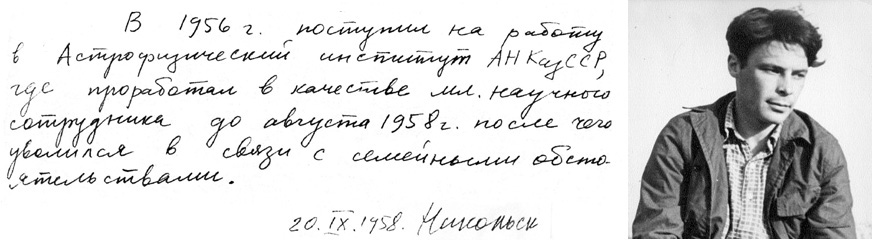 В 1956 г. поступил на работу
в Астрофизический институт АН КазССР,
где проработал в качестве мл. научного
сотрудника до августа 1958 г. после чего
уволился в связи с семейными обсто-
ятельствами.
20.IX.1958. Никольск